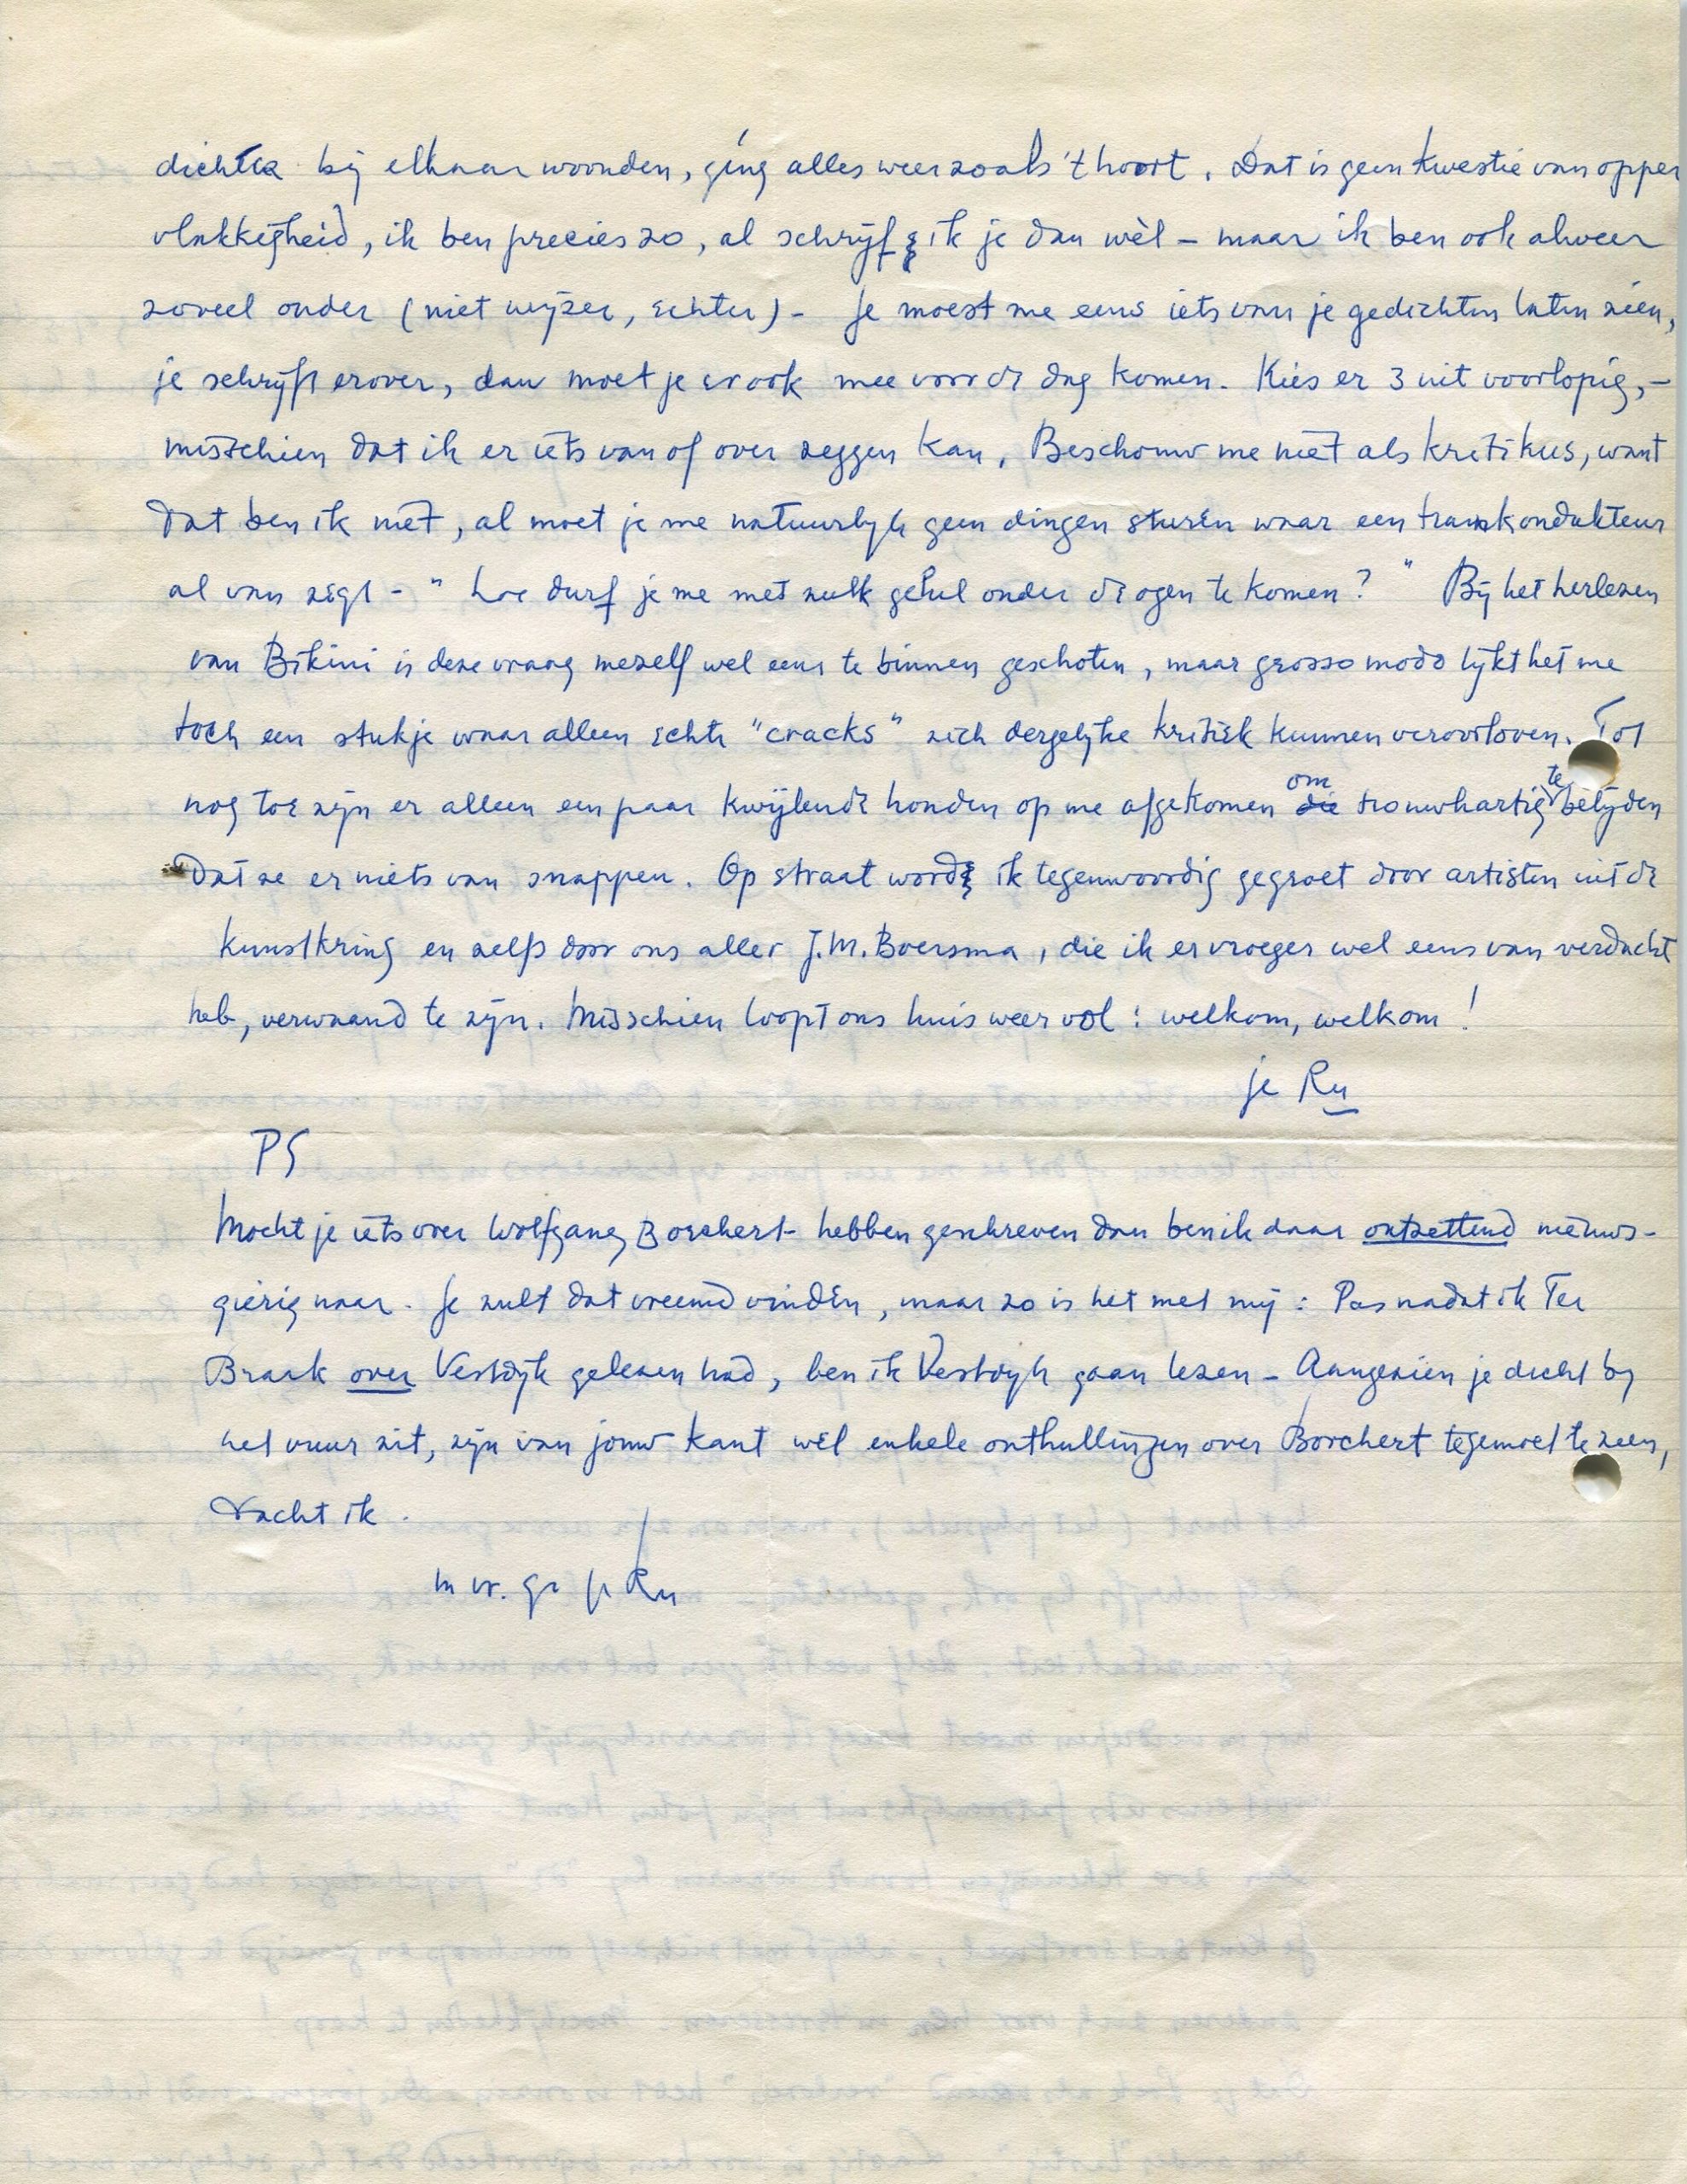 dichter bij elkaar woonden, ging alles weer zoals 't hoort. Dat is geen kwestie van opper
vlakkigheid, ik ben precies zo, al schrijf ik je dan wèl – maar ik ben ook alweer
zoveel ouder (niet wijzer, echter) – Je moest me eens iets van je gedichten laten zien,
je schrijft erover, dan moet je er ook mee voor de dag komen. Kies er 3 uit voorlopig, –
misschien dat ik er iets van of over zeggen kan. Beschouw me niet als kritikus, want
dat ben ik niet, al moet je me natuurlijk geen dingen sturen waar een tramkondukteur
al van zegt – "hoe durf je me met zulk gelul onder de ogen te komen?" Bij het herlezen
van Bikini is deze vraag mezelf wel eens te binnen geschoten, maar grosso modo lijkt het me
toch een stukje waar alleen echte "cracks" zich dergelijke kritiek kunnen veroorloven. Tot
nog toe zijn er alleen een paar kwijlende honden op me afgekomen die om trouwhartig te belijden
dat ze er niets van snappen. Op straat word ik tegenwoordig gegroet door artisten uit de
kunstkring en zelfs door ons aller J.M. Boersma, die ik er vroeger wel eens van verdacht
heb, verwaand te zijn. Misschien loopt ons huis weer vol: welkom, welkom!
je Ru
PS
Mocht je iets over Wolfgang Borchert hebben geschreven dan ben ik daar ontzettend nieuws-
gierig naar. Je zult dat vreemd vinden, maar zo is het met mij: Pas nadat ik Ter
Braak over Vestdijk gelezen had, ben ik Vestdijk gaan lezen – Aangezien je dicht bij
het vuur zit, zijn van jouw kant wel enkele onthullingen over Borchert tegemoet te zien,
dacht ik.
m vr. gr je Ru